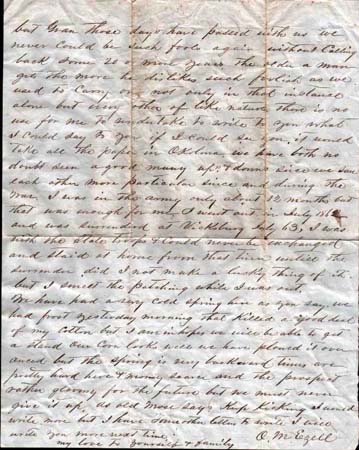 but Gran those days have passed with us we
never could be such fools again without calling
back some 20 or more years the older a man
gets the more he dislikes such foolish as we
used to carry on not only in that instance
alone but every other of like nature there is no
use for me to undertake to write to you what
I could say to you if I could see you, it would
take all the paper in Okolona we have both no
doubt seen a good many ups & downs since we saw
each other more particular since and during the
war, I was in the army only about 12 months but
that was enough for me I went out in July 1862
and was surrendered at Vicksburg July 63, I was
with the state troops & could never be exchanged
and staid at home from that time until the
surrender did I not make a lucky thing of it
but I smelt the patching while I was out.
We have had a very cold spring here as you say we
had frost yesterday morning that killed a good deal
of my cotton but I am in hopes we will be able to get
a stand our corn looks well we have plowed it over
once but the spring is very backward times are
pretty hard here & money scarce and the prospect
rather gloomy for the future but we must never
give it up, as old Mose says Keep Kicking I would
write more but I have some other letters to write I will
write you more next time,
my love to yourself & family
O. M. Ezell